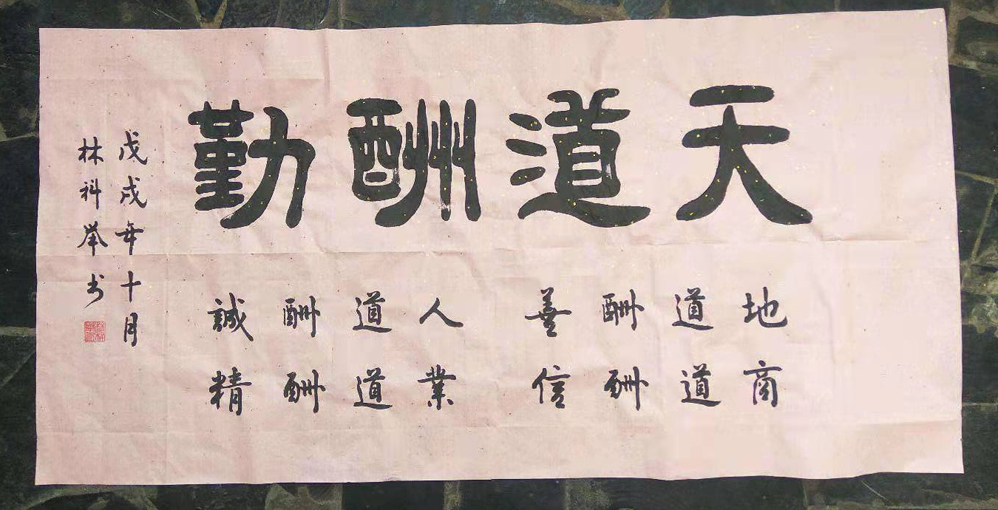 天道酬勤
地道酬善 人道酬誠
商道酬信 業道酬精
戊戌年十月
林科举书